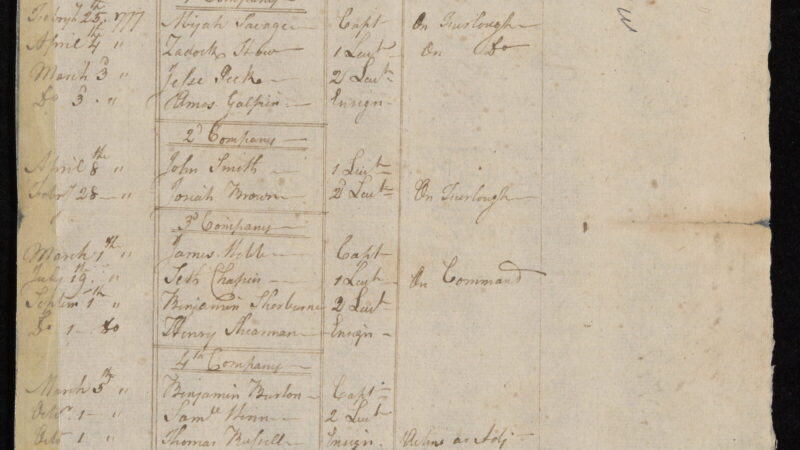 Company
Febry 25th 1777 Abijah Savage Capt On Furlough
April 4th " Zadock How 1 Lieut On Do
March 3d " Jesse Peck 2 Lieut
Do 3 " Amos Galpin Ensign
2d Company
April 8th " John Smith 1 Lieut
Febry 28 " Josiah Brown 2d Lieut On Furlough
3d Company
March 1st " James Webb Capt
July 19th " Seth Chapin 1 Lieut On Command
Septem 1th " Benjamin Sherburne 2 Lieut
Do 1 Do Henry Shearman Ensign
4th Company
March 5th " Benjamin Burton Capt
Octor 1 " Saml 2 Lieut
Octr 1 " Thomas Russell Ensign Acting as Adj